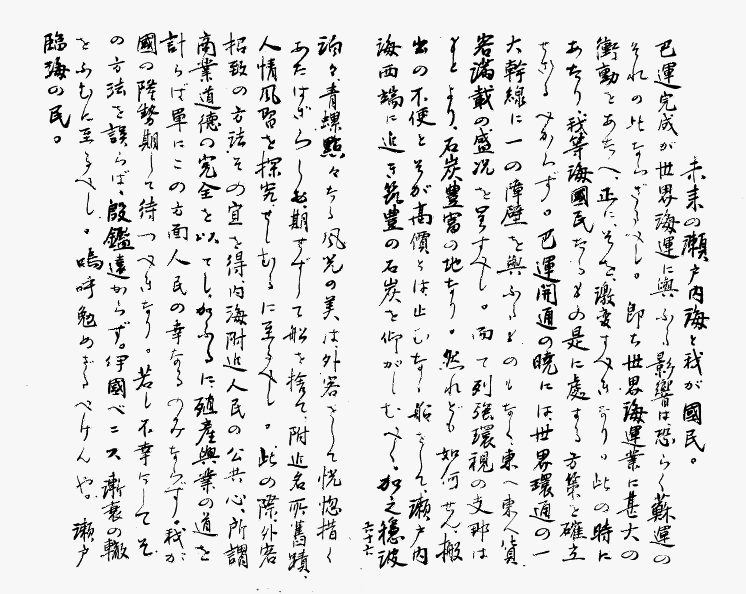 未来の瀬戸内海と我が國民。
巴運完成が世界海運に與ふる影響は恐らく蘇運の
それの比ならざるべし。即ち世界海運業に甚大の
衝動をあたへ、正にそを激変すべきなり。此の時に
あたり我等海國民たるもの是に處する方策を確立
せざるべからず。巴運開通の暁には世界環通の一
大幹線に一の障壁を與ふるものもなく、東へ東へ貨
客満載の盛況を呈すべし。而て列強環視の支那は
もとより、石炭豊富の地なり。然れども如何せん、搬
出の不便とそが高價とは止むなく船をして瀬戸内
海西端に近き筑豊の石炭を仰がしむべく。加之穏波
六十六
洵々、青螺點々たる風光の美は外客をして恍惚措く
あたはざらしめ、期せずして船を捨て、附近名所舊蹟、
人情風習を探究せしむるに至るべし。此の際外客
招致の方法その宜を得、内海附近人民の公共心、所謂
商業道徳の完全を以てし、加ふるに殖産興業の道を
計らば單にこの方面人民の幸なるのみならず。我が
國の隆勢期して待つべきなり。若し不幸にしてそ
の方法を誤らば、殷鑑遠からず。伊國ベニス漸衰の轍
をふむに至るべし。嗚呼勉めざるべけんや。瀬戸
臨海の民。